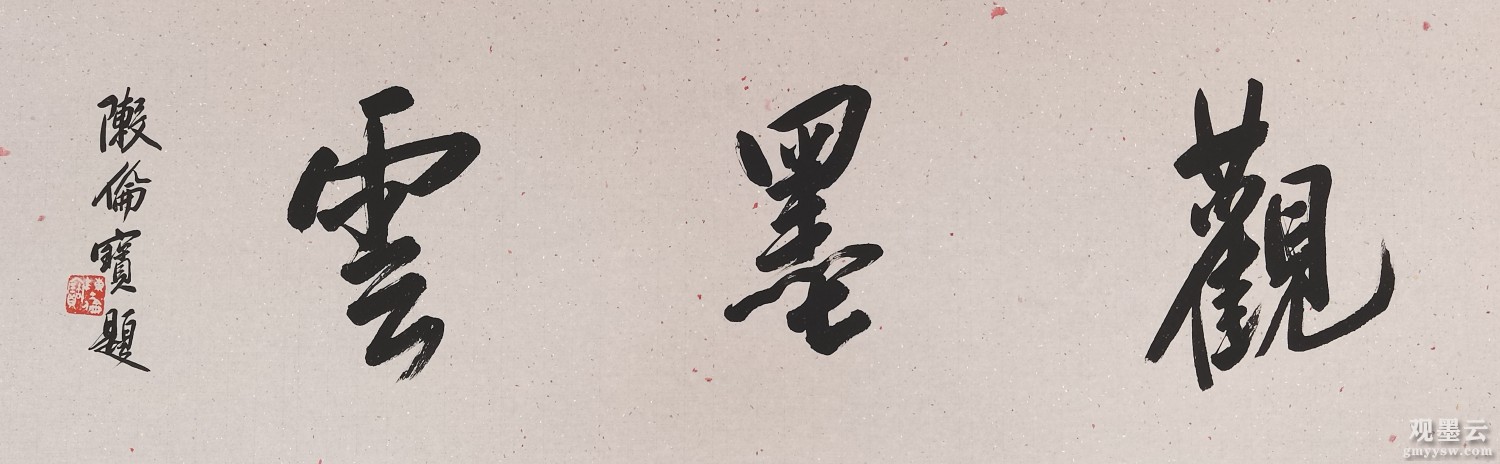 觀墨雲
敶倫寶題
观墨云
gmyysw.com